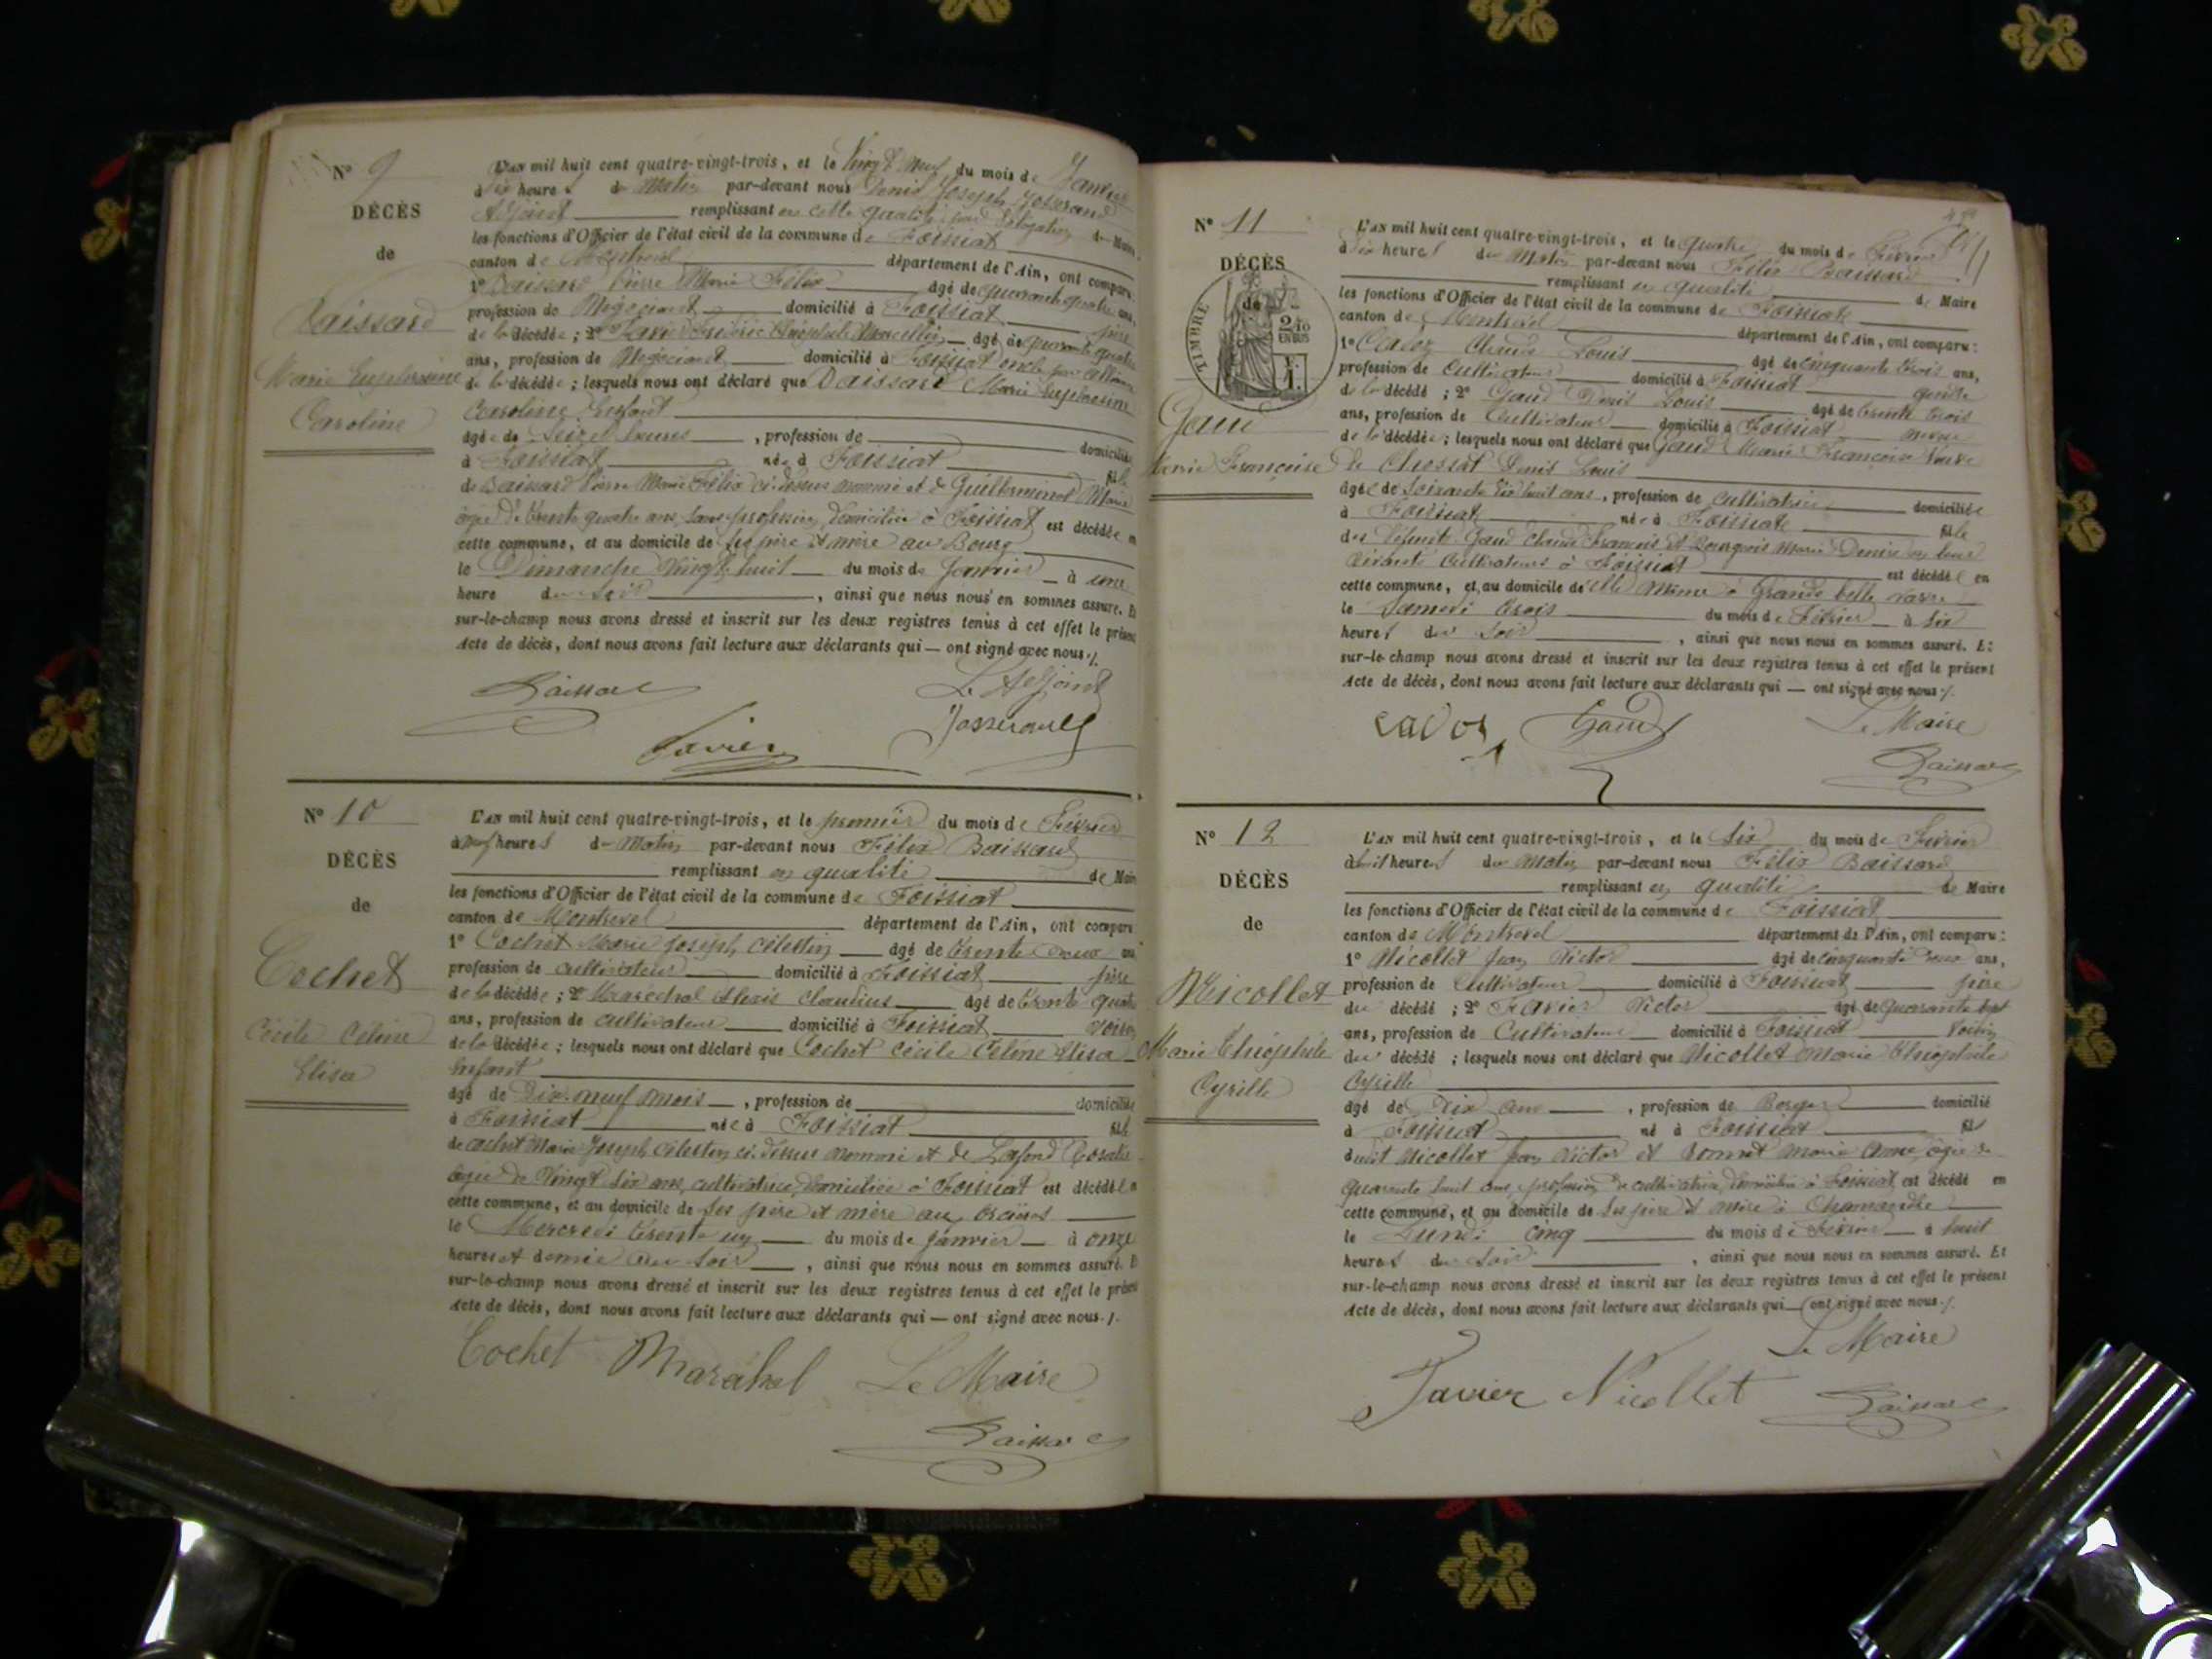 N° 9
DÉCÈS
de
Baissard
Marie Euphrosine
Caroline
L'AN mil huit cent quatre-vingt-trois, et le Vingt neuf du mois de Janvier
à dix heures du Matin par-devant nous Denis Joseph Josserand
Adjoint remplissant en cette qualité, par délégation du Maire
les fonctions d'Officier de l'état civil de la commune de Foissiat
canton de Montrevel département de l'Ain, ont comparu:
1° Baissard Pierre Marie Félix âgé de quarante quatre ans,
profession de Négociant domicilié à Foissiat père
de la décédée; 2° Favier Frédéric Théophile Marcellin âgé de quarante quatre
ans, profession de Négociant domicilié à Foissiat oncle par alliance
de la décédée; lesquels nous ont déclaré que Baissard Marie Euphrosine
Caroline Enfant
âgée de Seize heures, profession de domiciliée
à Foissiat née à Foissiat fille
de Baissard Pierre Marie Félix ci-dessus nommé et de Guillerminet Marie
âgée de trente quatre ans, sans profession, domiciliée à Foissiat est décédée en
cette commune, et au domicile de ses père et mère au Bourg
le Dimanche Vingt huit du mois de Janvier à une
heure du soir, ainsi que nous nous en sommes assuré. Et
sur-le-champ nous avons dressé et inscrit sur les deux registres tenus à cet effet le présent
Acte de décès, dont nous avons fait lecture aux déclarants qui — ont signé avec nous./.
Baissard L'Adjoint
Favier Josserand
N° 10
DÉCÈS
de
Cochet
Cécile Céline
Elisa
L'AN mil huit cent quatre-vingt-trois, et le premier du mois de Février
à neuf heures du Matin par-devant nous Félix Baissard
remplissant en qualité de Maire
les fonctions d'Officier de l'état civil de la commune de Foissiat
canton de Montrevel département de l'Ain, ont comparu
1° Cochet Marie Joseph Célestin âgé de trente deux ans
profession de cultivateur domicilié à Foissiat père
de la décédée; 2° Maréchal Alexis Claudius âgé de trente quatre
ans, profession de cultivateur domicilié à Foissiat voisin
de la décédée; lesquels nous ont déclaré que Cochet Cécile Céline Elisa
Enfant
âgé de Dix-neuf mois, profession de domiciliée
à Foissiat née à Foissiat fille
de Cochet Marie Joseph Célestin ci-dessus nommé et de Lafond Rosalie
âgée de Vingt six ans, cultivatrice, domiciliée à Foissiat est décédée en
cette commune, et au domicile de ses père et mère aux
le Mercredi trente un du mois de Janvier à onze
heures et demie du soir, ainsi que nous nous en sommes assuré. Et
sur-le-champ nous avons dressé et inscrit sur les deux registres tenus à cet effet le présent
Acte de décès, dont nous avons fait lecture aux déclarants qui — ont signé avec nous./.
Cochet Maréchal Le Maire
Baissard
N° 11
DÉCÈS
de
TIMBRE
2/10
EN SUS
F.
1.
Gaud
Marie Françoise
L'AN mil huit cent quatre-vingt-trois, et le quatre du mois de Février
à dix heures du Matin par-devant nous Félix Baissard
remplissant en qualité de Maire
les fonctions d'Officier de l'état civil de la commune de Foissiat
canton de Montrevel département de l'Ain, ont comparu:
1° Claude Louis âgé de cinquante trois ans,
profession de Cultivateur domicilié à Foissiat gendre
de la décédé; 2° Gaud Denis Louis âgé de trente trois
ans, profession de Cultivateur domicilié à Foissiat neveu
de la décédée; lesquels nous ont déclaré que Gaud Marie Françoise Veuve
de Chossat Denis Louis
âgée de Soixante dix huit ans, profession de cultivatrice domiciliée
à Foissiat née à Foissiat fille
des défunts Gaud Claude François et Bourgeois Marie Denise en leur
vivant Cultivateurs à Foissiat est décédée en
cette commune, et au domicile de elle même à Grande belle
le Samedi trois du mois de Février à six
heures du soir, ainsi que nous nous en sommes assuré. Et
sur-le-champ nous avons dressé et inscrit sur les deux registres tenus à cet effet le présent
Acte de décès, dont nous avons fait lecture aux déclarants qui — ont signé avec nous./.
Gaud Le Maire
Baissard
N° 12
DÉCÈS
de
Nicollet
Marie Théophile
Cyrille
L'AN mil huit cent quatre-vingt-trois, et le Six du mois de Février
à huit heures du Matin par-devant nous Félix Baissard
remplissant en qualité de Maire
les fonctions d'Officier de l'état civil de la commune de Foissiat
canton de Montrevel département de l'Ain, ont comparu:
1° Nicollet Jean Victor âgé de cinquante deux ans,
profession de Cultivateur domicilié à Foissiat père
du décédé; 2° Favier Victor âgé de Quarante sept
ans, profession de Cultivateur domicilié à Foissiat Voisin
du décédé; lesquels nous ont déclaré que Nicollet Marie Théophile
Cyrille
âgé de Dix ans, profession de Berger domicilié
à Foissiat né à Foissiat fils
dudit Nicollet Jean Victor et Bonnet Marie Anne, âgée de
quarante huit ans, profession de cultivatrice, domiciliée à Foissiat, est décédé en
cette commune, et au domicile de ses père et mère à Chamandre
le Lundi cinq du mois de Février à huit
heures du soir, ainsi que nous nous en sommes assuré. Et
sur-le-champ nous avons dressé et inscrit sur les deux registres tenus à cet effet le présent
Acte de décès, dont nous avons fait lecture aux déclarants qui — ont signé avec nous./.
Le Maire
Favier Nicollet Baissard